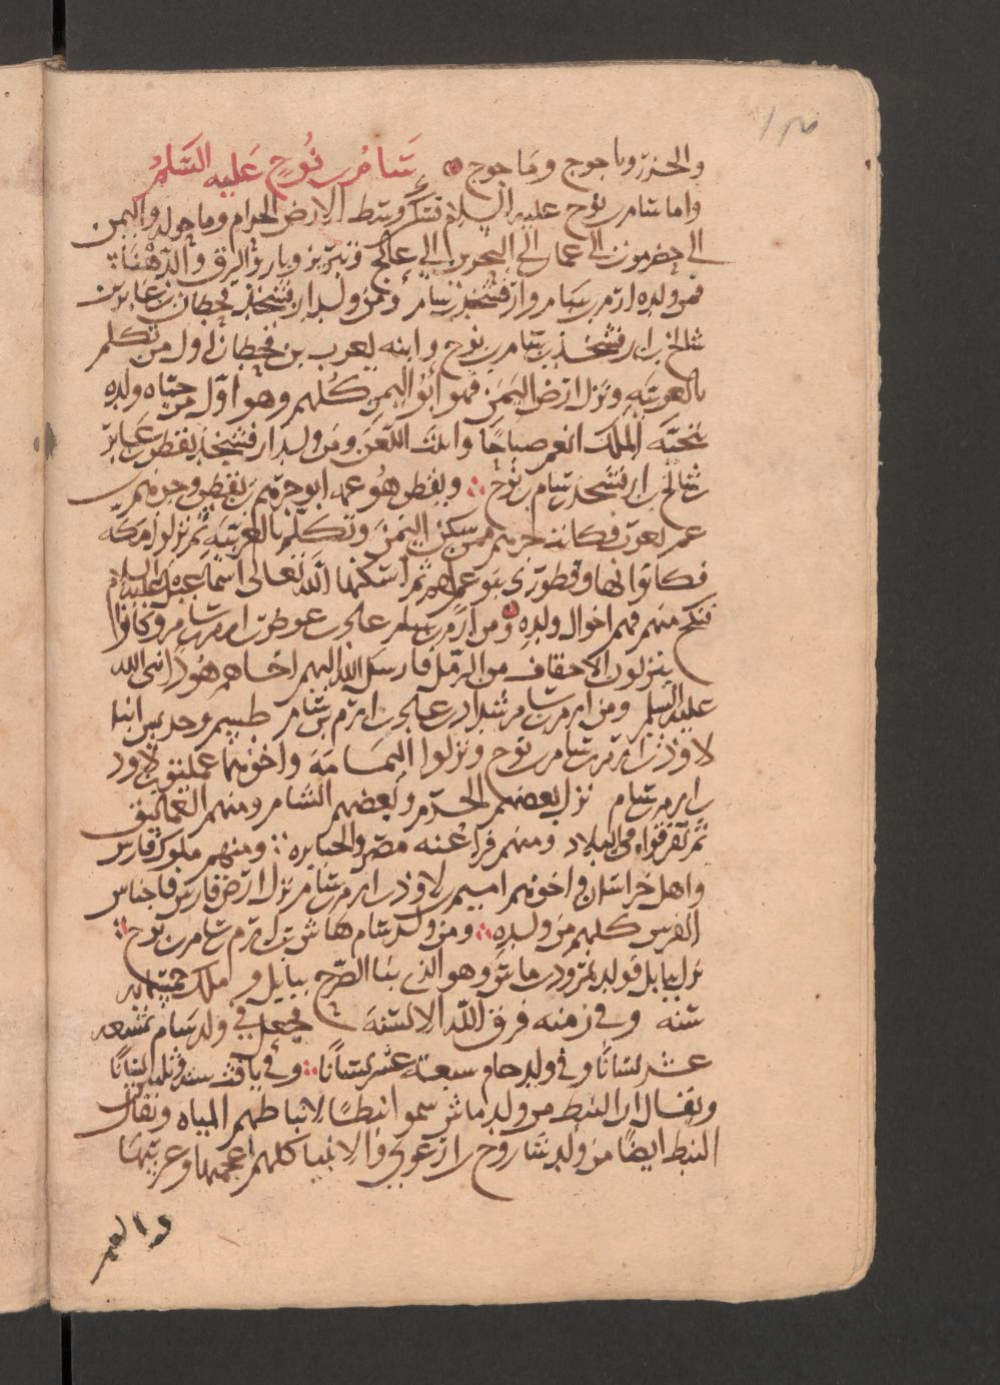 والخزر وياجوج وماجوج سام بن نوح عليه السلم
واما سام بن نوح عليه السلام فسكن وسط الارض الحرام وما حوله واليمن
الى حضرموت الى عمان الى البحرين الى عالج ويبرين ووبار والدو والدهناء
فمن ولده ارم بن سام وارفشخذ بن سام ومن ولد ارفشخذ قحطان بن عابر بن
شالخ بن ارفشخذ بن سام بن نوح وابنه يعرب بن قحطان اول من تكلم
بالعربية ونزل ارض اليمن فهو ابو اليمن كلهم وهو اول من حياه ولده
بتحية الملك انعم صباحا وابيت اللعن ومن ولد ارفشخذ يقطن بن عابر
بن شالخ بن ارفشخذ بن سام بن نوح ويقطن هو عمه ابو جرهم بن يقطن وجرهم بن
عم يعرب فكانت جرهم ممن سكن اليمن وتكلم بالعربية ثم نزلوا مكة
فكانوا بها وقطورى بنو عم لهم ثم اسكنها الله تعالى اسماعيل عليه السلام
فنكح منهم فهم اخوال ولده ومن ارم بن سام عاد بن عوض بن ارم بن سام وكانوا
ينزلون الاحقاف من الرمل فارسل الله اليهم اخاهم هودا نبي الله
عليه السلم ومن ارم بن سام شداد بن عاد بن ارم بن سام طسم وجديس ابنا
لاوذ بن ارم بن سام بن نوح ونزلوا اليمامة واخوهما عمليق بن لاود
بن ارم بن سام نزل بعضهم الحرم وبعضهم الشام ومنهم العماليق
ثم تفرقوا في البلاد ومنهم فراعنه مصر والجبابره ومنهم ملوك فارس
واهل خراسان واخوهم اميم بن لاوذ بن ارم بن سام نزل ارض فارس فاجناس
الفرس كلهم من ولده ومن ولد سام ماش بن ارم بن سام بن نوح
نزل ببابل فولد نمرود بن ماش وهو الذي بنا الصرح ببابل وملك خمسمايه
سنه وفي زمنه فرق الله الالسنة فجعل في ولد سام تسعه
عشر لسانا وفي ولد حام سبعة عشر لسانا وفي يافث ستة وثلثين لسانا
ويقال ان النبط من ولد ماش سموا نبطا لانباطهم المياه ويقال
النبط ايضا من ولد شاروخ بن ارعوى والانبيا كلهم اعجميها وعربيها